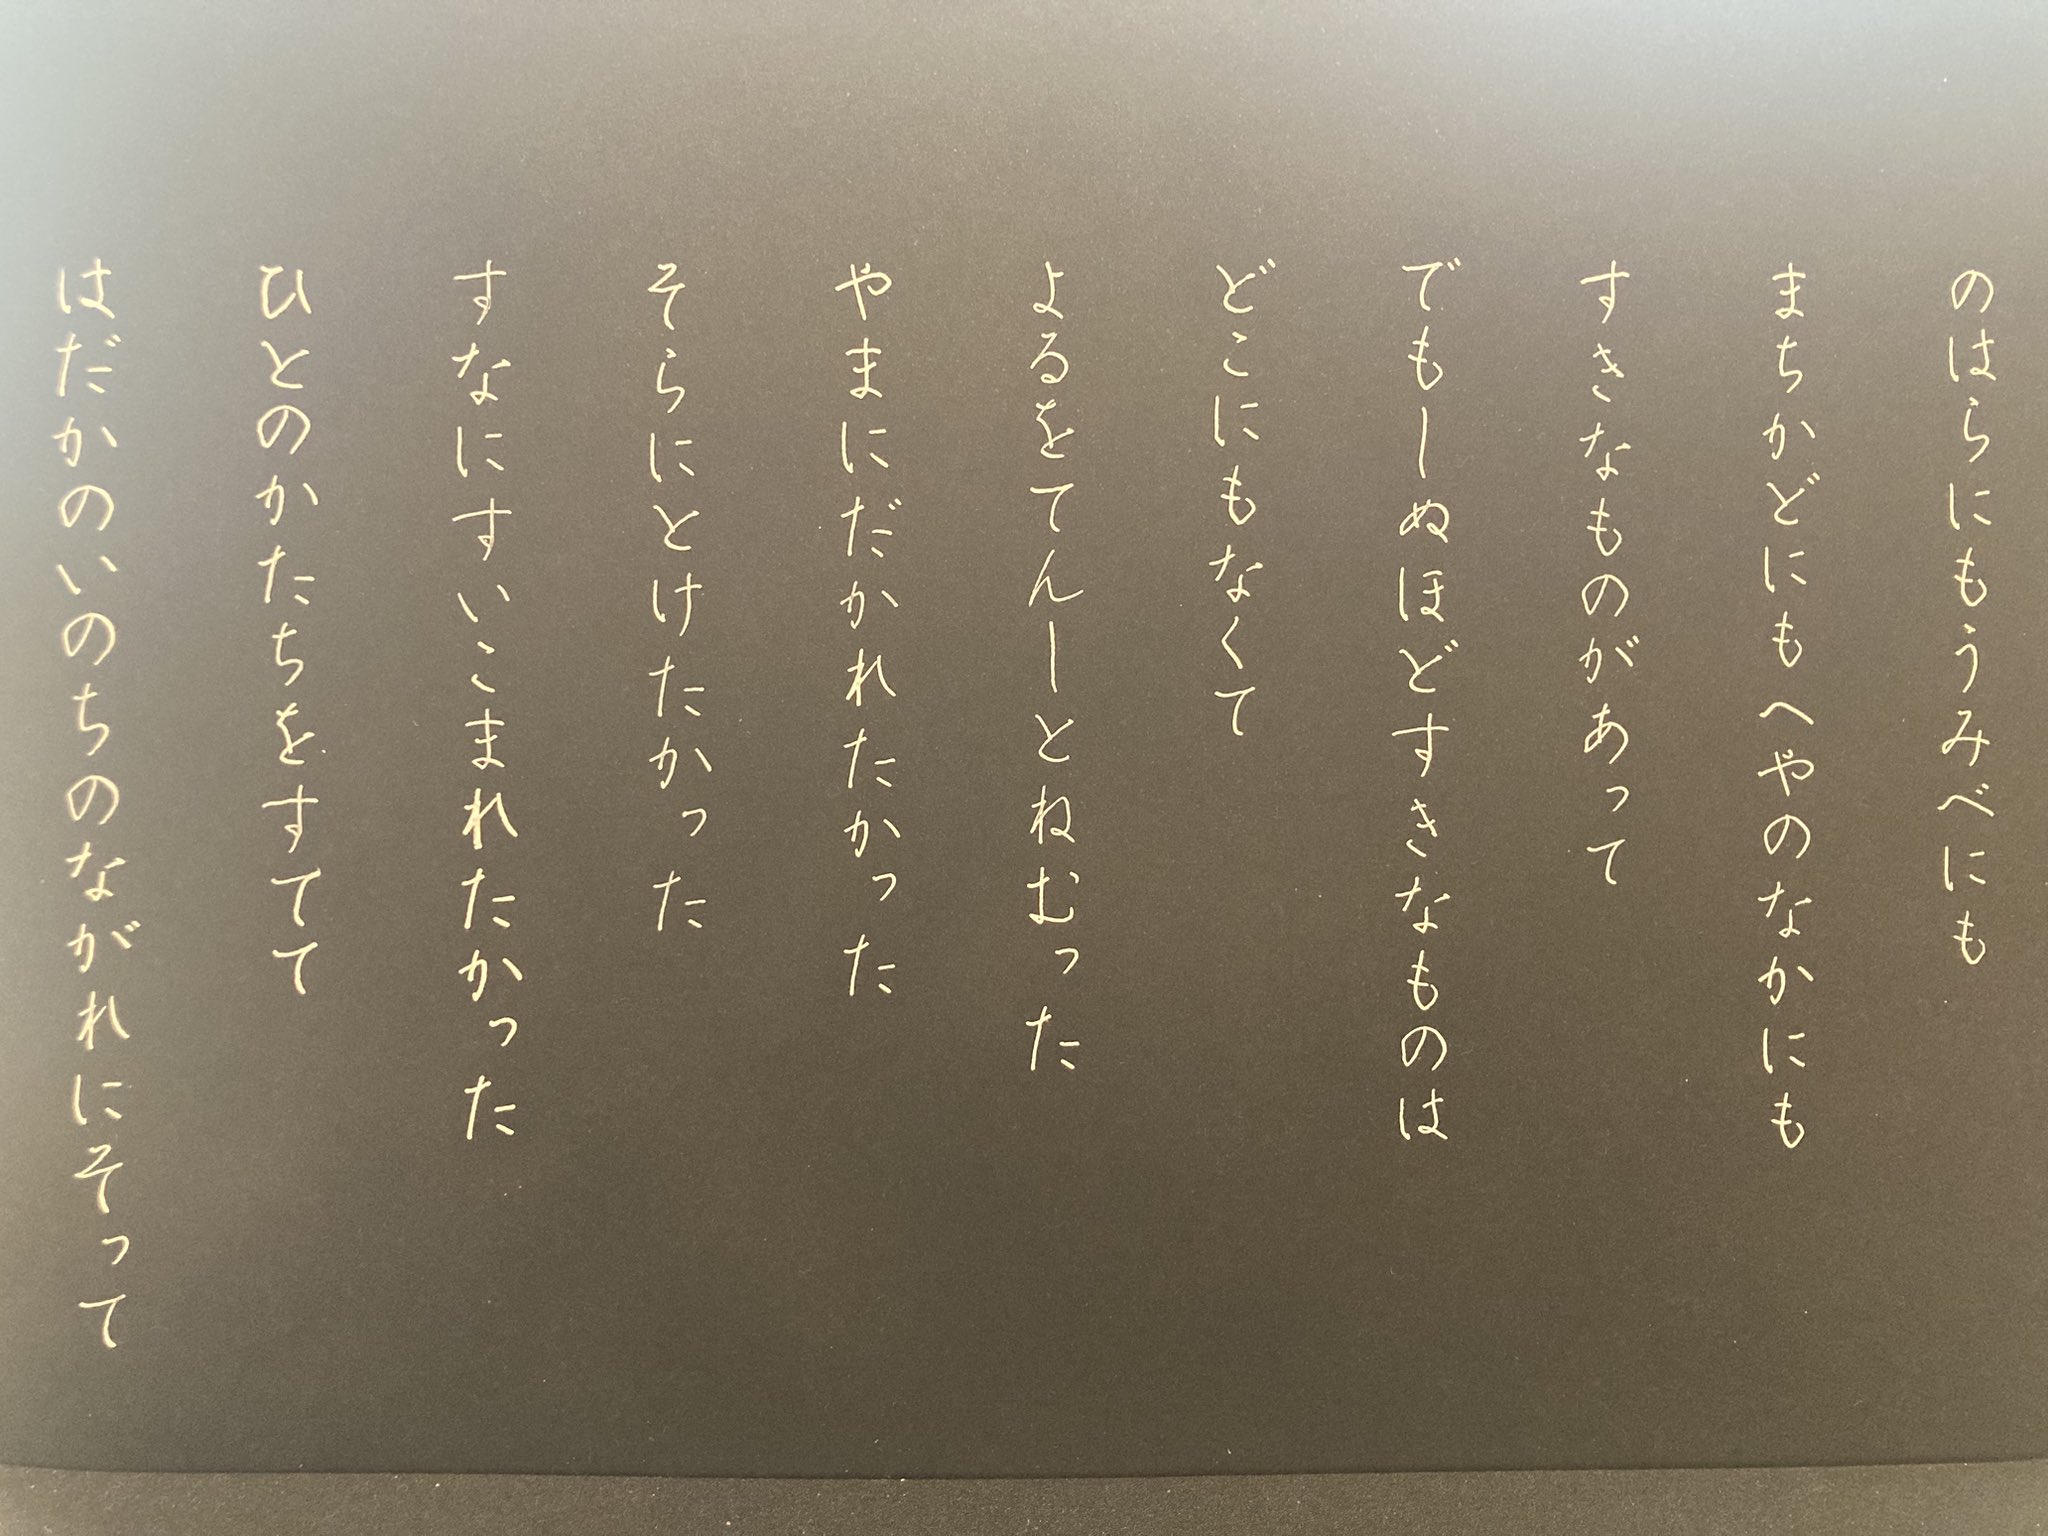 のはらにもうみべにも
まちかどにもへやのなかにも
すきなものがあって
でもしぬほどすきなものは
どこにもなくて
よるをてんしとねむった
やまにだかれたかった
そらにとけたかった
すなにすいこまれたかった
ひとのかたちをすてて
はだかのいのちのながれにそって